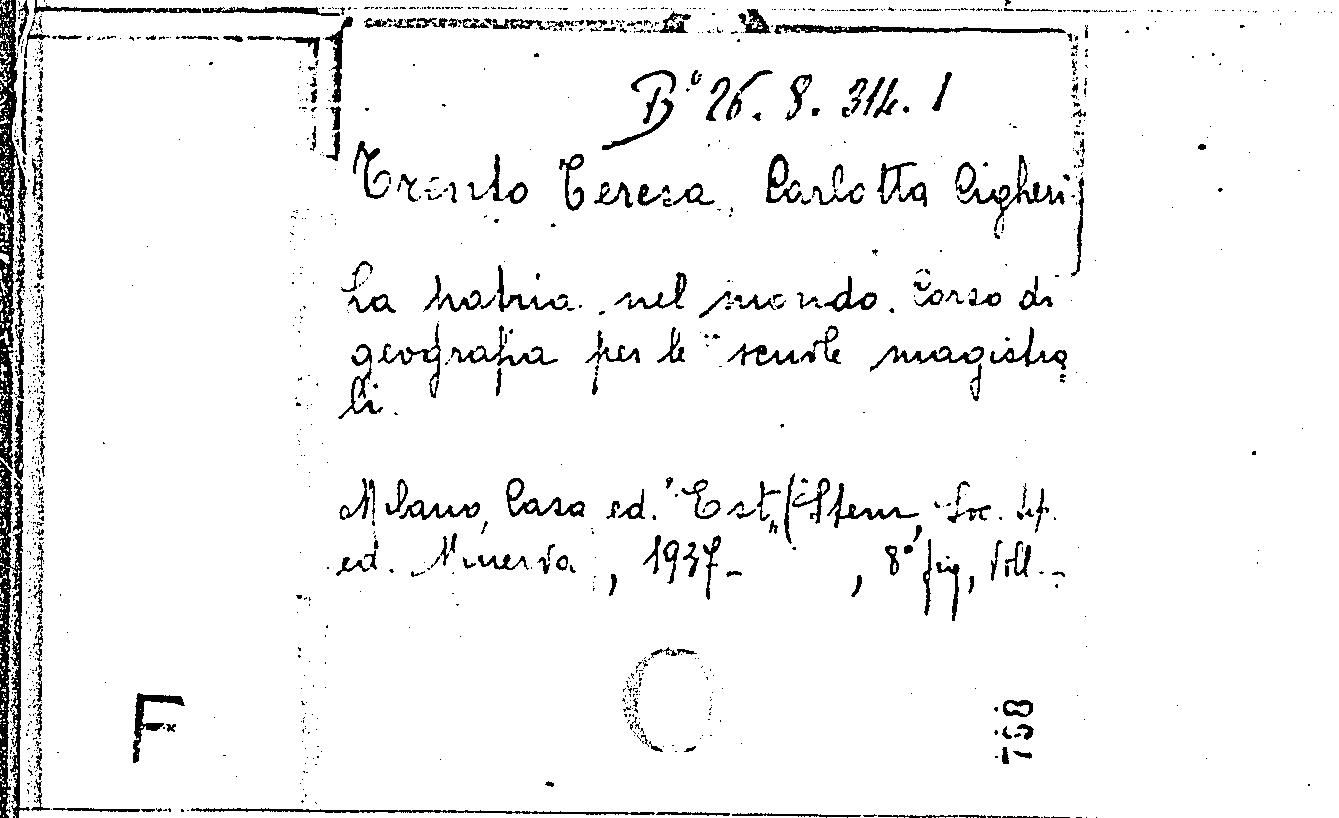 B° 26. 8. 314. 1
Trento Teresa, Carlotta Cigheri
La patria nel mondo. Corso di
geografia per le scuole magistra
li.
Milano, Casa ed. "Est" (Stem, Soc. tip.
ed. Minerva, 1937- , 8° fig, Voll.-
F
768